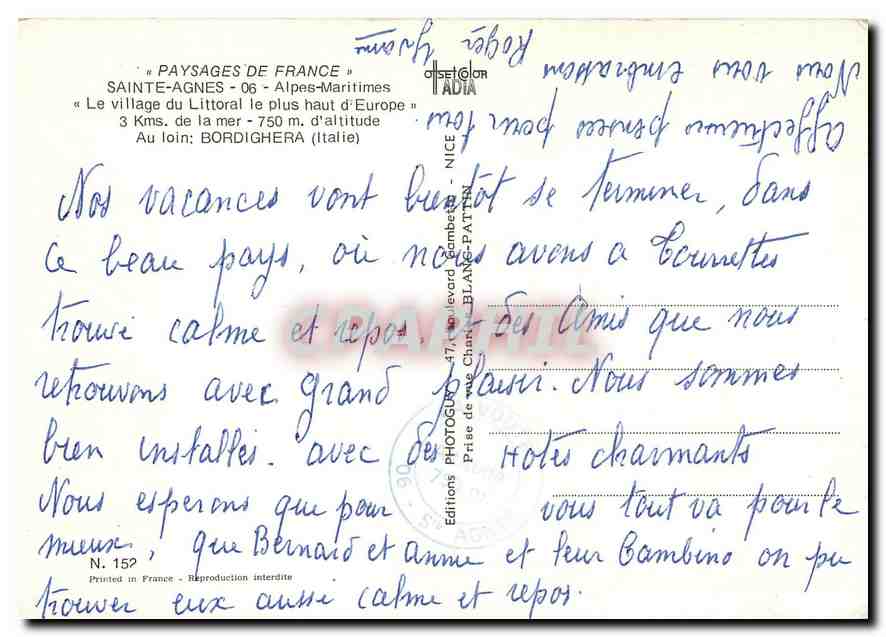 « PAYSAGES DE FRANCE »
SAINTE-AGNES - 06 - Alpes-Maritimes
« Le village du Littoral le plus haut d'Europe »
3 Kms. de la mer - 750 m. d'altitude
Au loin: BORDIGHERA (Italie)
Nos vacances vont bientôt se terminer, dans
ce beau pays, où nous avons a Tourrettes
trouvé calme et repos. et des Amis que nous
retrouvons avec grand plaisir. Nous sommes
bien installés. avec des Hotes charmants
Nous esperons que pour vous tout va pour le
mieux, que Bernard et anne et leur Bambino on pu
trouver eux aussi calme et repos.
affectueuses pensées pour tous.
Nous vous embrassons
Roger Yvonne
OFFSETCOLOR
ADIA
Editions PHOTOGUY - 47, Boulevard Gambetta - NICE
Prise de vue Charles BLANC-PATTIN
CPAPHIL
06 - Ste AGNES
N. 152
Printed in France - Reproduction interdite